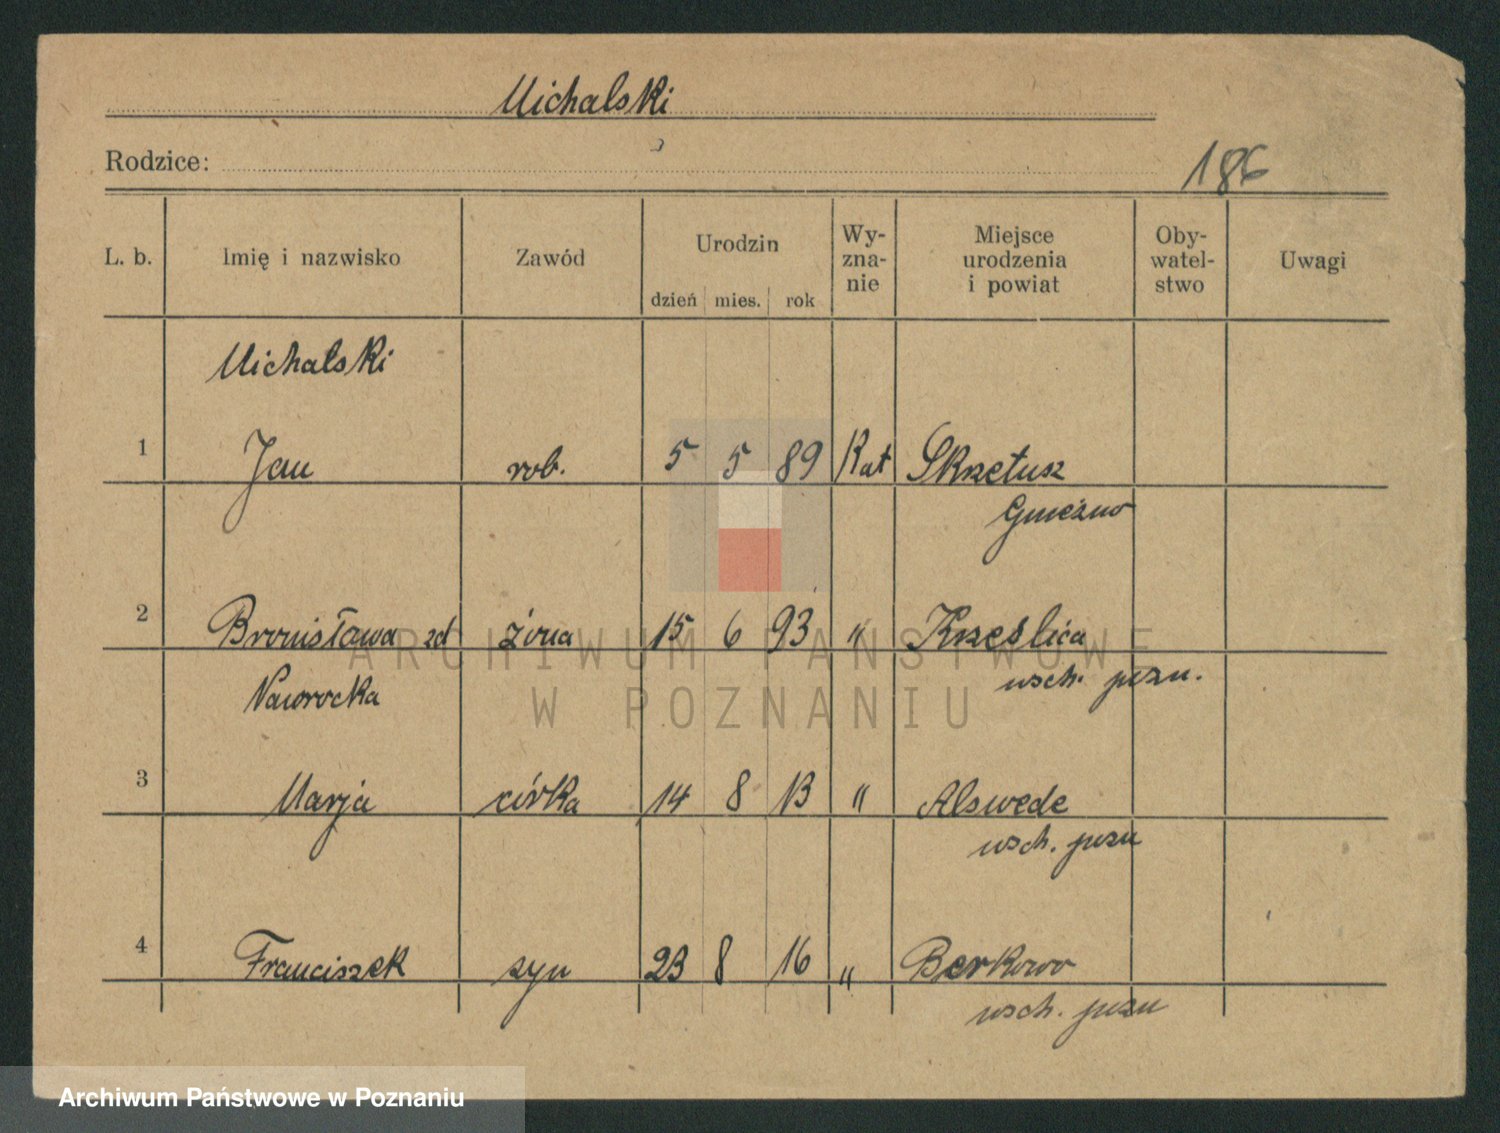 Michalski
Rodzice:
186
L. b. Imię i nazwisko Zawód Urodzin Wy-zna-nie Miejsce urodzenia i powiat Oby-watel-stwo Uwagi
dzień mies. rok
Michalski
1 Jan rob. 5 5 89 Kat Skrzetusz
Gniezno
2 Bronisława zd żona 15 6 93 " Krześlica
Nawrocka wsch. pozn.
3 Marja córka 14 8 13 " Alswede
wsch. pozn
4 Franciszek syn 23 8 16 " Berkowo
wsch. pozn
ARCHIWUM PAŃSTWOWE
W POZNANIU
Archiwum Państwowe w Poznaniu